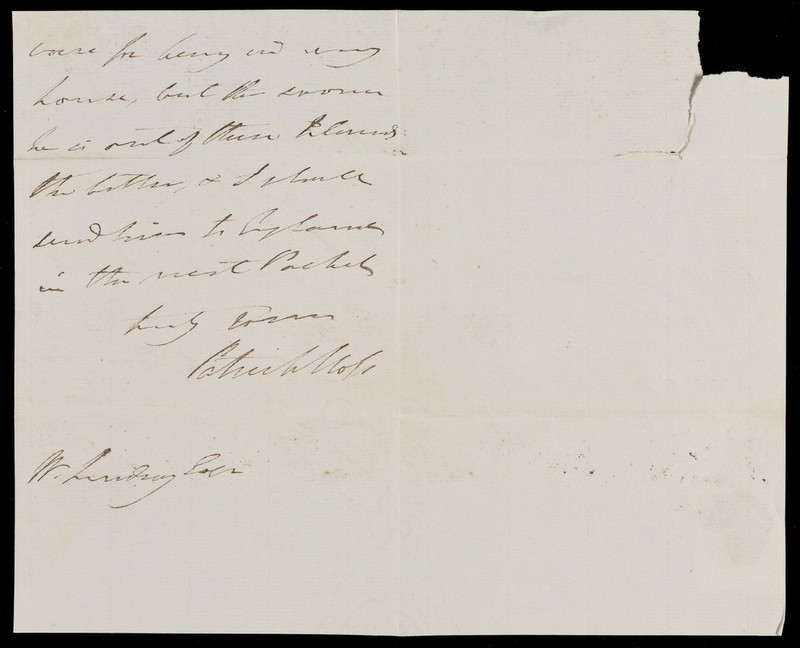 worse for being in my
house, but the sooner
he is out of these Islands
the better, & I shall
send him to England
in the next Packet
truly yours
Patrick Ross
W. Lindsay Esqr